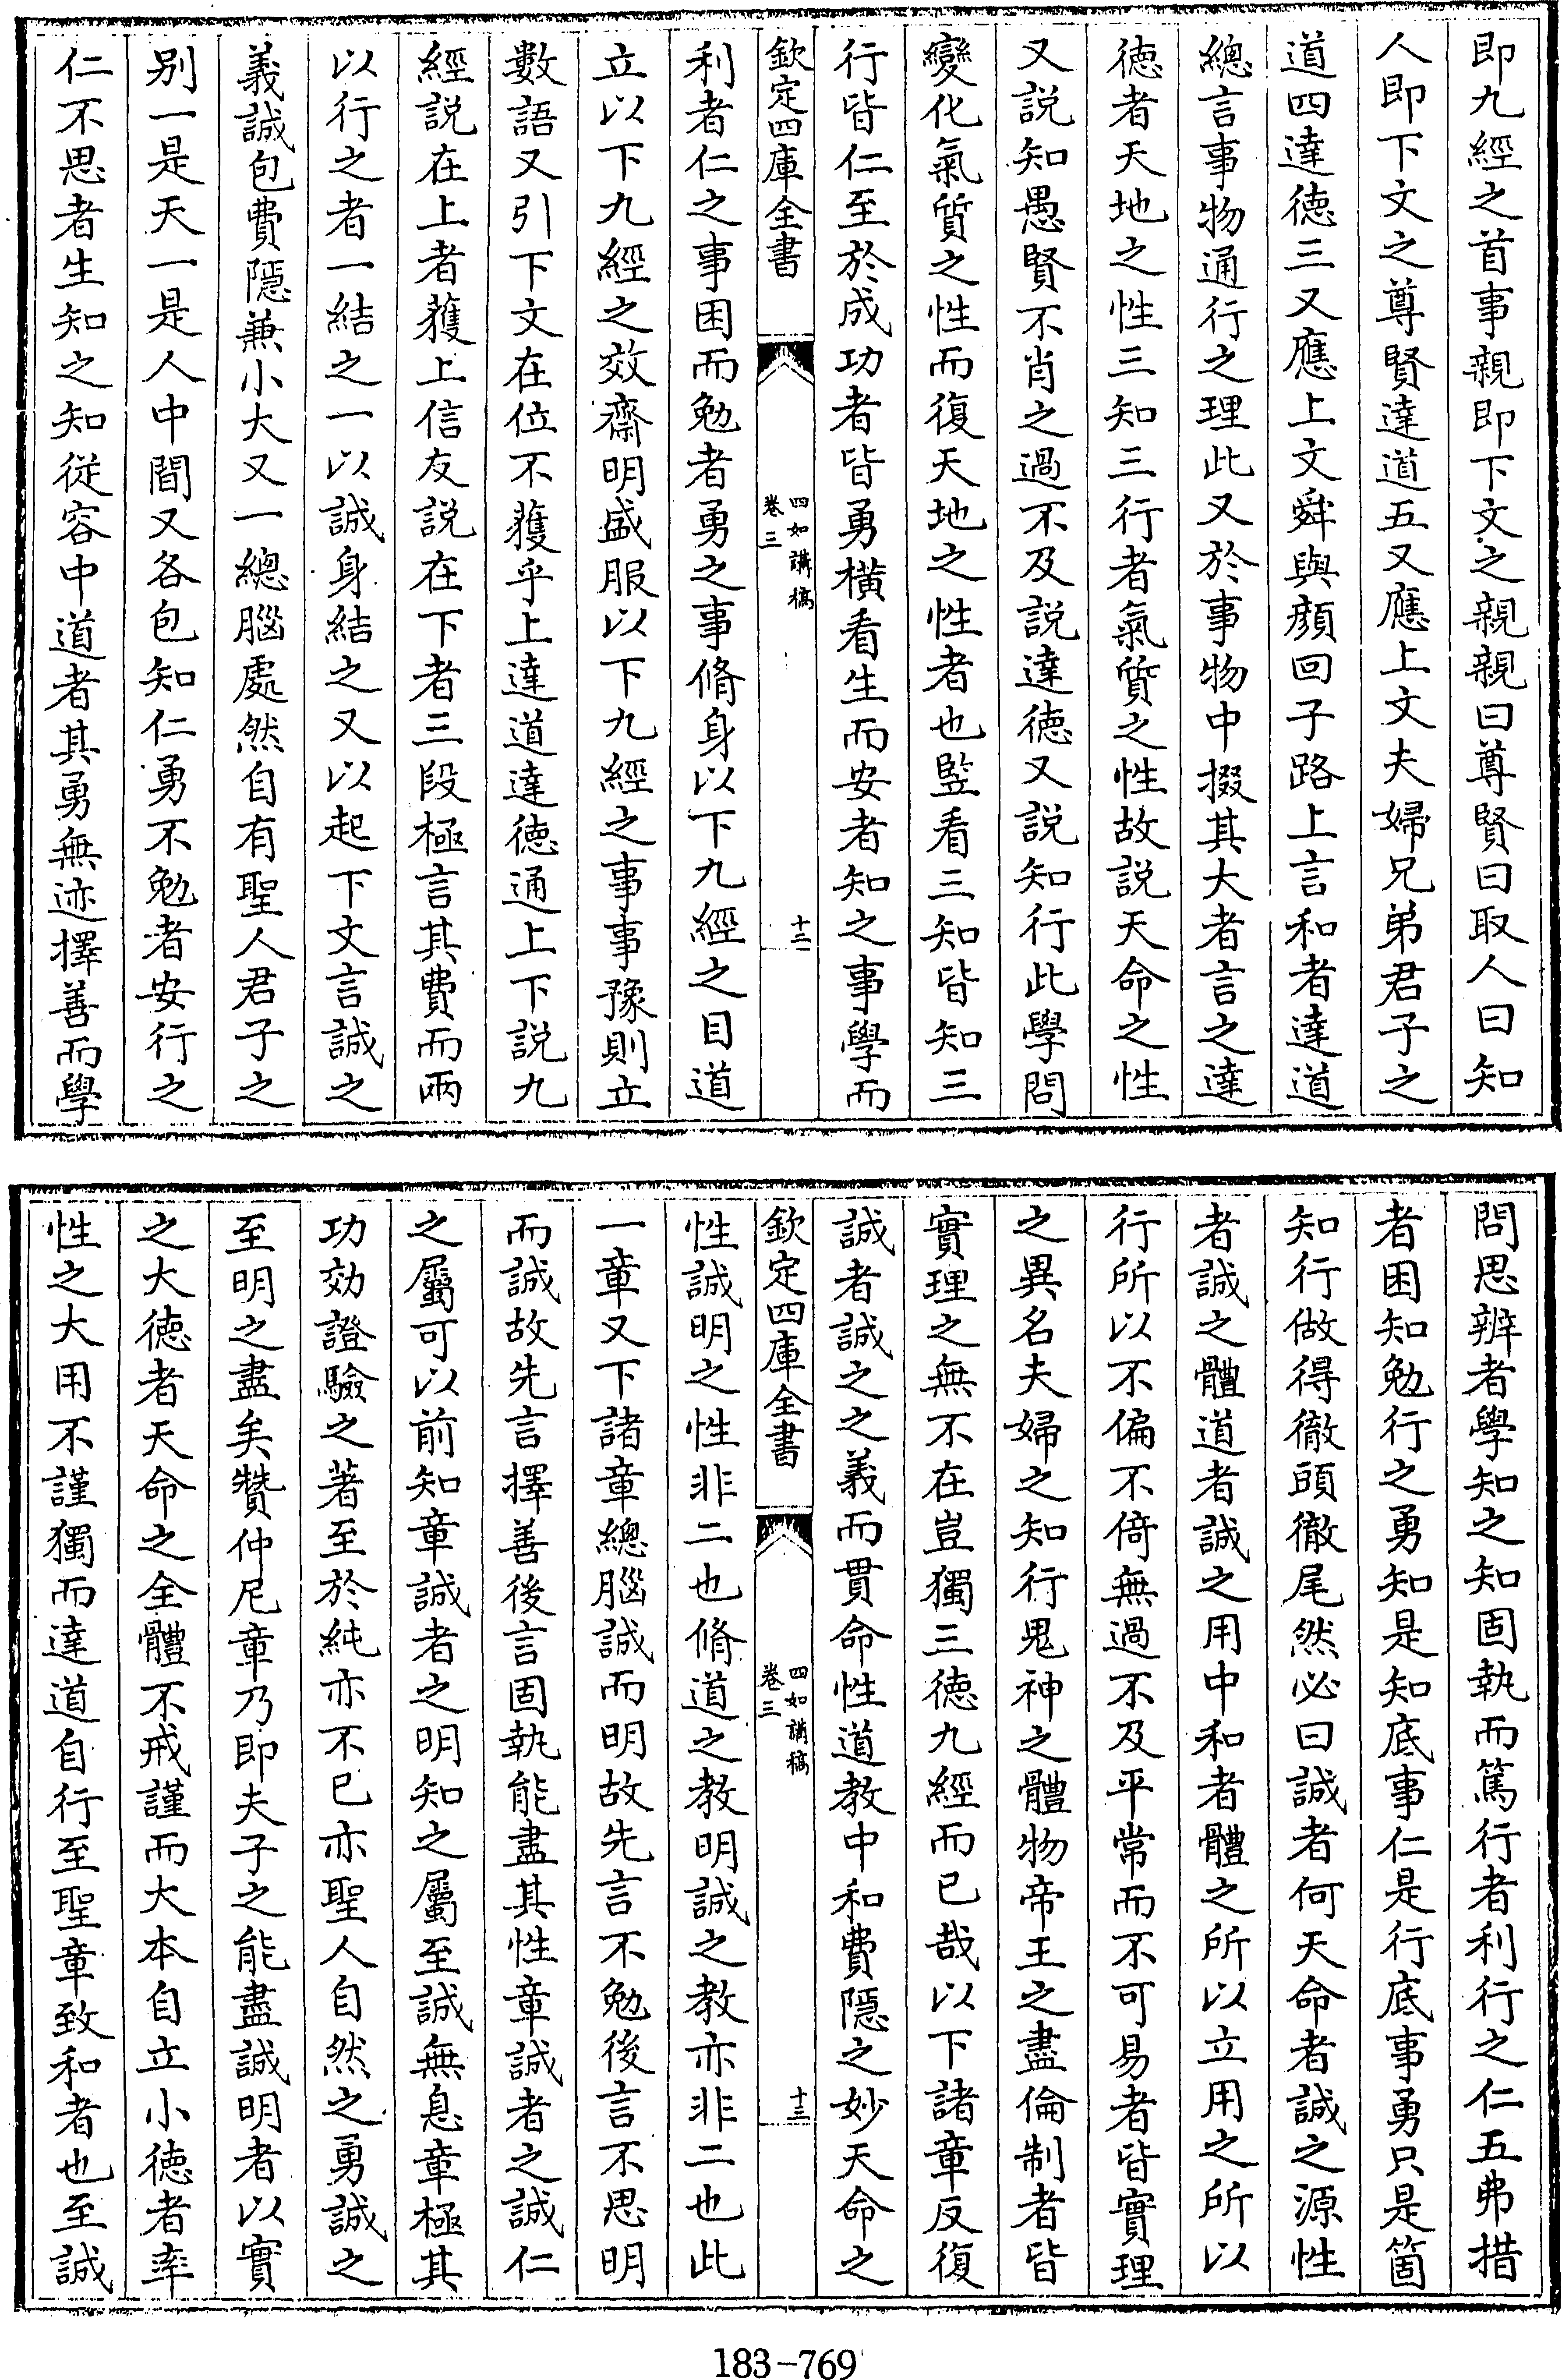 即九經之首事親即下文之親親曰尊賢曰取人曰知
人即下文之尊賢達道五又應上文夫婦兄弟君子之
道四達德三又應上文舜與顔回子路上言和者達道
總言事物通行之理此又於事物中掇其大者言之達
德者天地之性三知三行者氣質之性故說天命之性
又說知愚賢不肖之過不及說達德又說知行此學問
變化氣質之性而復天地之性者也竪看三知皆知三
行皆仁至於成功者皆勇橫看生而安者知之事學而
欽定四庫全書
四如講稿
卷三
十二
利者仁之事困而勉者勇之事脩身以下九經之目道
立以下九經之效齋明盛服以下九經之事事豫則立
數語又引下文在位不獲乎上達道達德通上下說九
經說在上者獲上信友說在下者三段極言其費而兩
以行之者一結之一以誠身結之又以起下文言誠之
義誠包費隱兼小大又一總腦處然自有聖人君子之
别一是天一是人中間又各包知仁勇不勉者安行之
仁不思者生知之知從容中道者其勇無迹擇善而學
問思辨者學知之知固執而篤行者利行之仁五弗措
者困知勉行之勇知是知底事仁是行底事勇只是箇
知行做得徹頭徹尾然必曰誠者何天命者誠之源性
者誠之體道者誠之用中和者體之所以立用之所以
行所以不偏不倚無過不及平常而不可易者皆實理
之異名夫婦之知行鬼神之體物帝王之盡倫制者皆
實理之無不在豈獨三德九經而已哉以下諸章反復
誠者誠之之義而貫命性道教中和費隱之妙天命之
欽定四庫全書
四如講稿
卷三
十三
性誠明之性非二也脩道之教明誠之教亦非二也此
一章又下諸章總腦誠而明故先言不勉後言不思明
而誠故先言擇善後言固執能盡其性章誠者之誠仁
之屬可以前知章誠者之明知之屬至誠無息章極其
功効證驗之著至於純亦不已亦聖人自然之勇誠之
至明之盡矣贊仲尼章乃即夫子之能盡誠明者以實
之大德者天命之全體不戒謹而大本自立小德者率
性之大用不謹獨而達道自行至聖章致和者也至誠
183-769